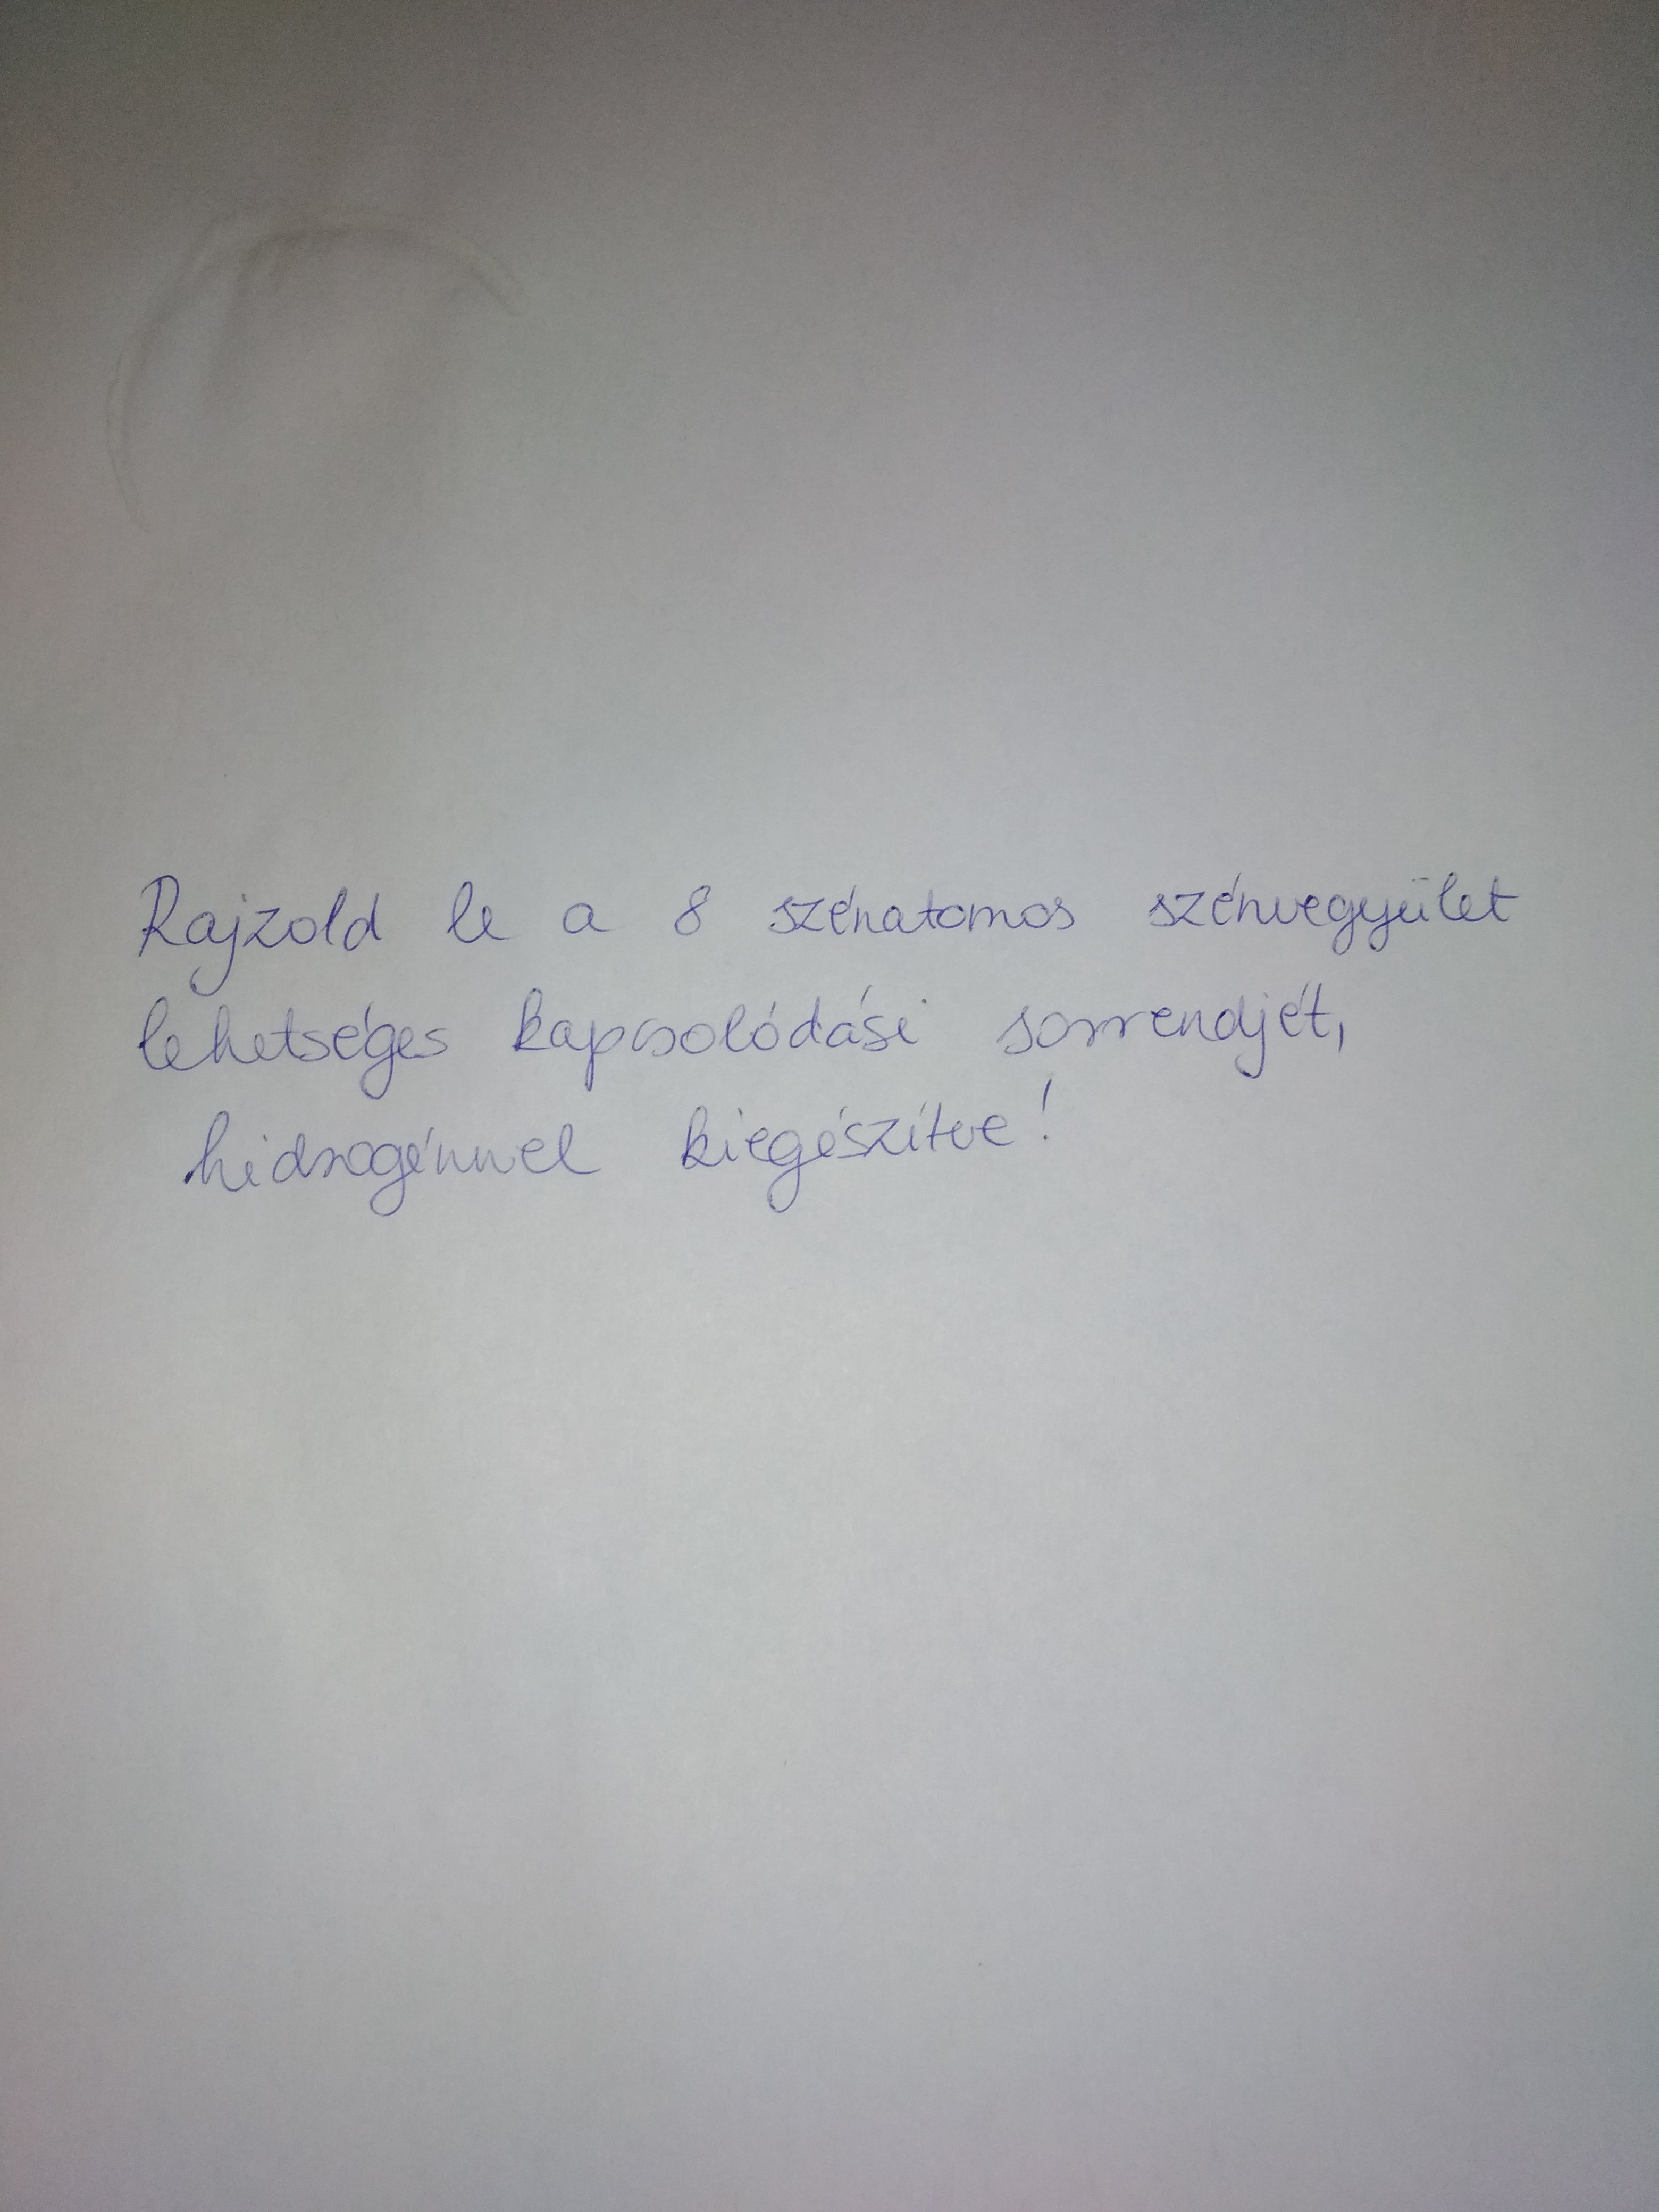 Rajzold le a 8 szénatomos szénvegyület
lehetséges kapcsolódási sorrendjét,
hidrogénnel kiegészítve!